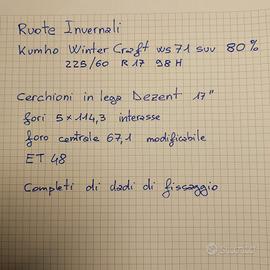 Ruote Invernali
Kumho Winter Craft ws71 suv 80%
225/60 R 17 98H
Cerchioni in lega Dezent 17"
fori 5x114,3 interasse
foro centrale 67,1 modificabile
ET 48
Completi di dadi di fissaggio
subito